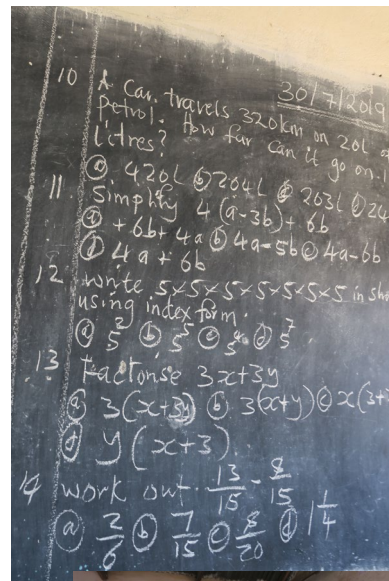 30/7/2019
10 A Car. travels 320km on 20L of
petrol. How far can it go on.
Litres?
ⓐ 420L ⓑ 204L ⓒ 203L ⓓ
11 Simplify 4(a-3b)+6b
ⓐ +6b+4a ⓑ 4a-5b ⓒ 4a-6b
ⓓ 4a+6b
12 write 5×5×5×5×5×5×5 in
using index form.
ⓐ 5² ⓑ 5⁵ ⓒ ⓓ 5⁷
13 Factorise 3x+3y
ⓐ 3(x+3y) ⓑ 3(x+y) ⓒ x(3+
ⓓ y(x+3)
14 work out 13/15 - 8/15
ⓐ 2/6 ⓑ 7/15 ⓒ 8/20 ⓓ 1 1/4